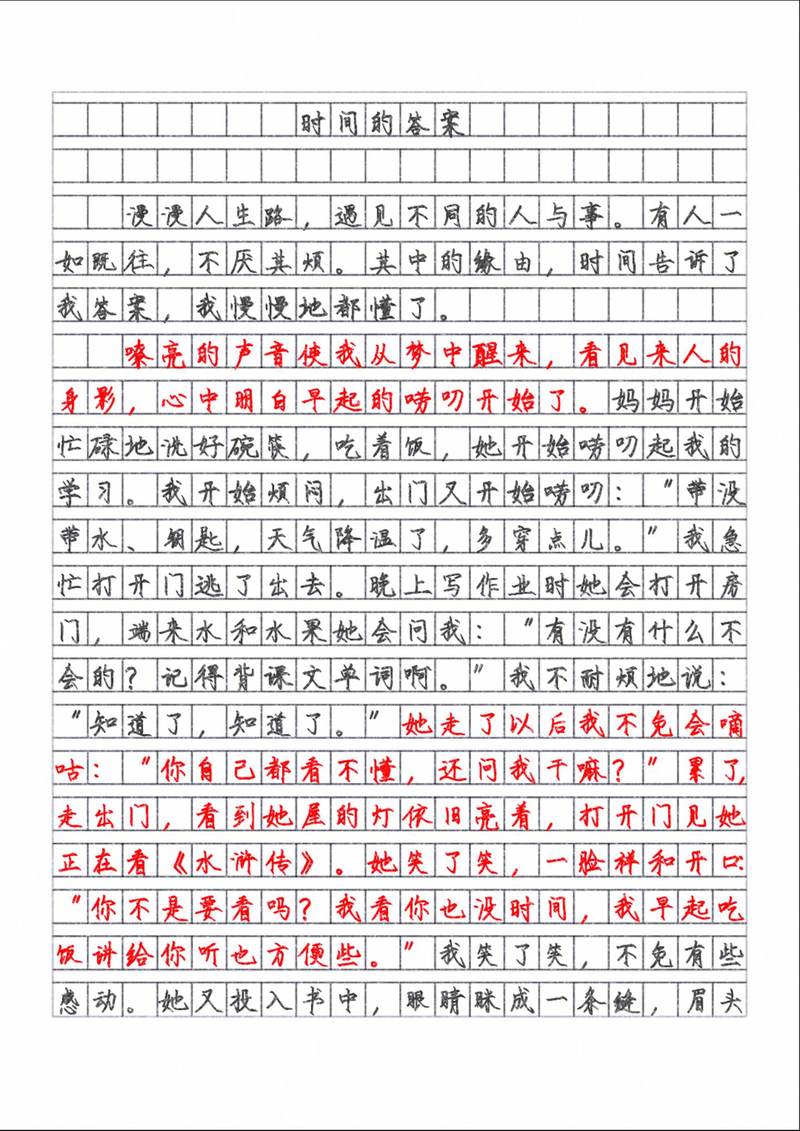 时间的答案
漫漫人生路，遇见不同的人与事。有人一
如既往，不厌其烦。其中的缘由，时间告诉了
我答案，我慢慢地都懂了。
嘹亮的声音使我从梦中醒来，看见来人的
身影，心中明白早起的唠叨开始了。妈妈开始
忙碌地洗好碗筷，吃着饭，她开始唠叨起我的
学习。我开始烦闷，出门又开始唠叨：“带没
带水、钥匙，天气降温了，多穿点儿。”我急
忙打开门逃了出去。晚上写作业时她会打开房
门，端来水和水果她会问我：“有没有什么不
会的？记得背课文单词啊。”我不耐烦地说：
“知道了，知道了。”她走了以后我不免会嘀
咕：“你自己都看不懂，还问我干嘛？”累了，
走出门，看到她屋的灯依旧亮着，打开门见她
正在看《水浒传》。她笑了笑，一脸祥和开口：
“你不是要看吗？我看你也没时间，我早起吃
饭讲给你听也方便些。”我笑了笑，不免有些
感动。她又投入书中，眼睛眯成一条缝，眉头